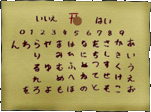 いいえ はい
0 1 2 3 4 5 6 7 8 9
あいうえお
かきくけこ
さしすせそ
たちつてと
なにぬねの
はひふへほ
まみむめも
やゆよ
らりるれろ
わ
を
ん